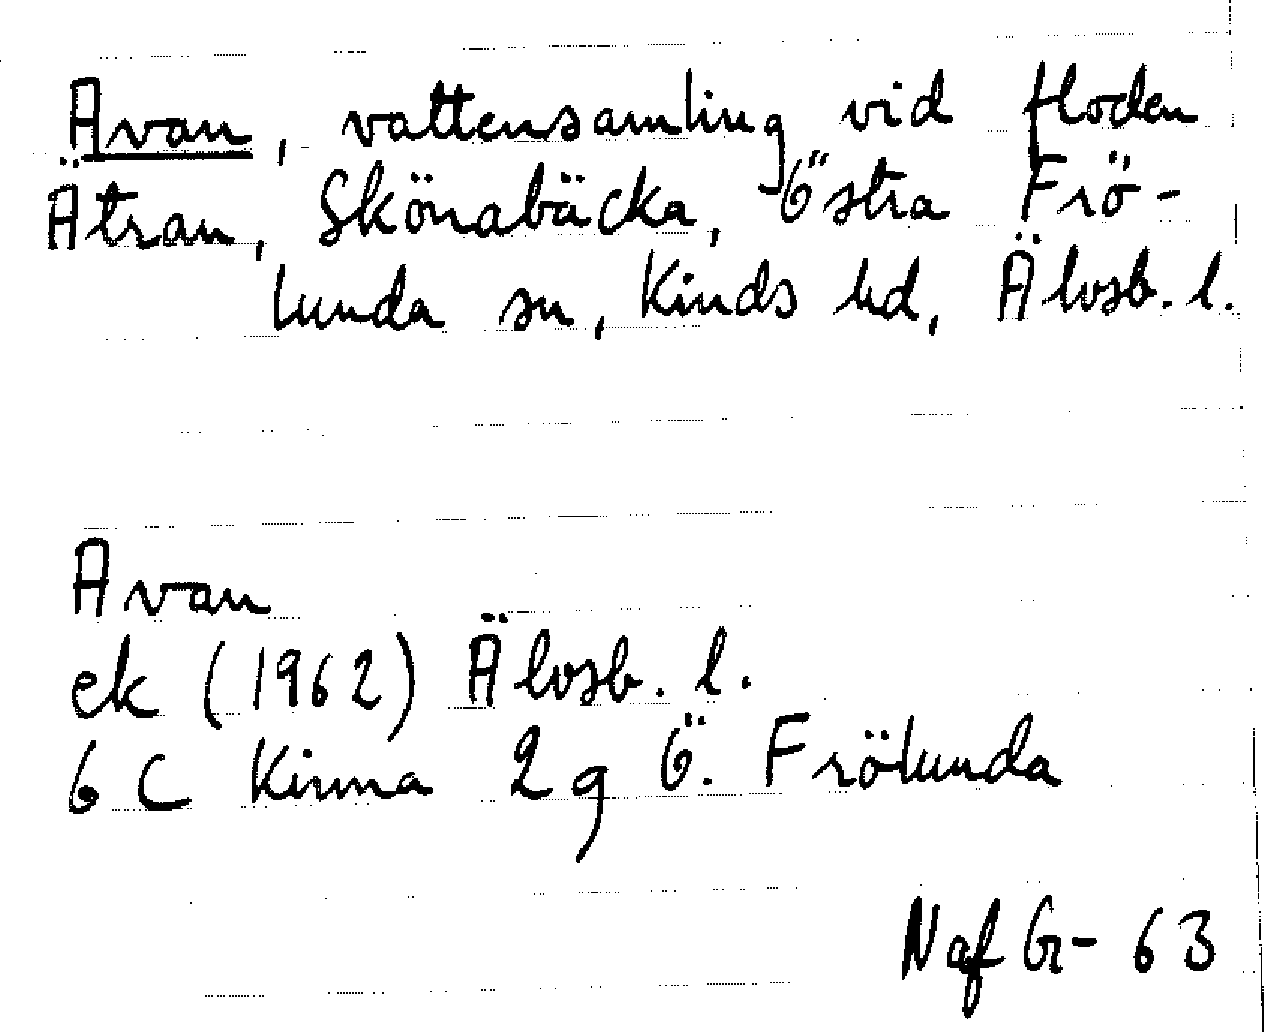 Avan, vattensamling vid floden
Ätran, Skönabäcka, Östra Frö-
lunda sn, Kinds hd, Älvsb. l.
Avan
ek (1962) Älvsb. l.
6 C Kinna 2 g Ö. Frölunda
Naf Gr- 63